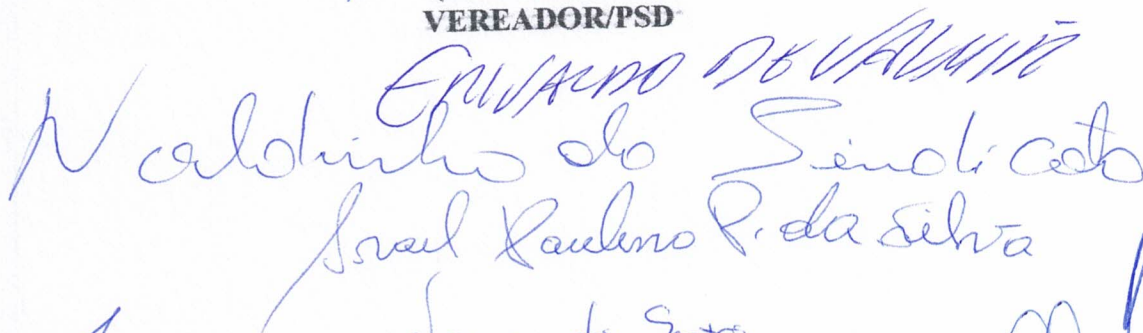 VEREADOR/PSD
ERIVALDO DE VALMIR
Naldinho do Sindicato
Israel Paulino P. da Silva